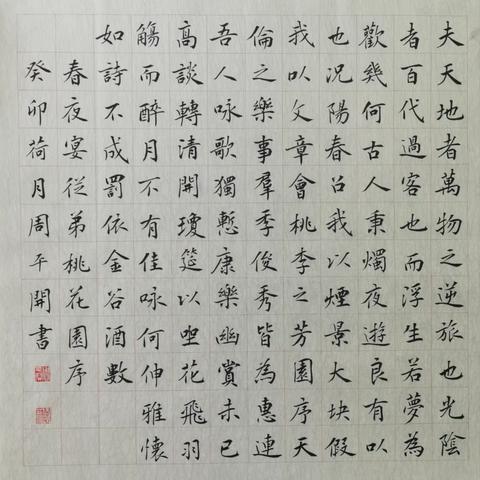 夫天地者萬物之逆旅也光陰
者百代過客也而浮生若夢為
歡幾何古人秉燭夜遊良有以
也況陽春召我以煙景大塊假
我以文章會桃李之芳園序天
倫之樂事羣季俊秀皆為惠連
吾人咏歌獨慙康樂幽賞未已
高談轉清開瓊筵以坐花飛羽
觴而醉月不有佳咏何伸雅懷
如詩不成罰依金谷酒數
春夜宴從弟桃花園序
癸卯荷月周平開書